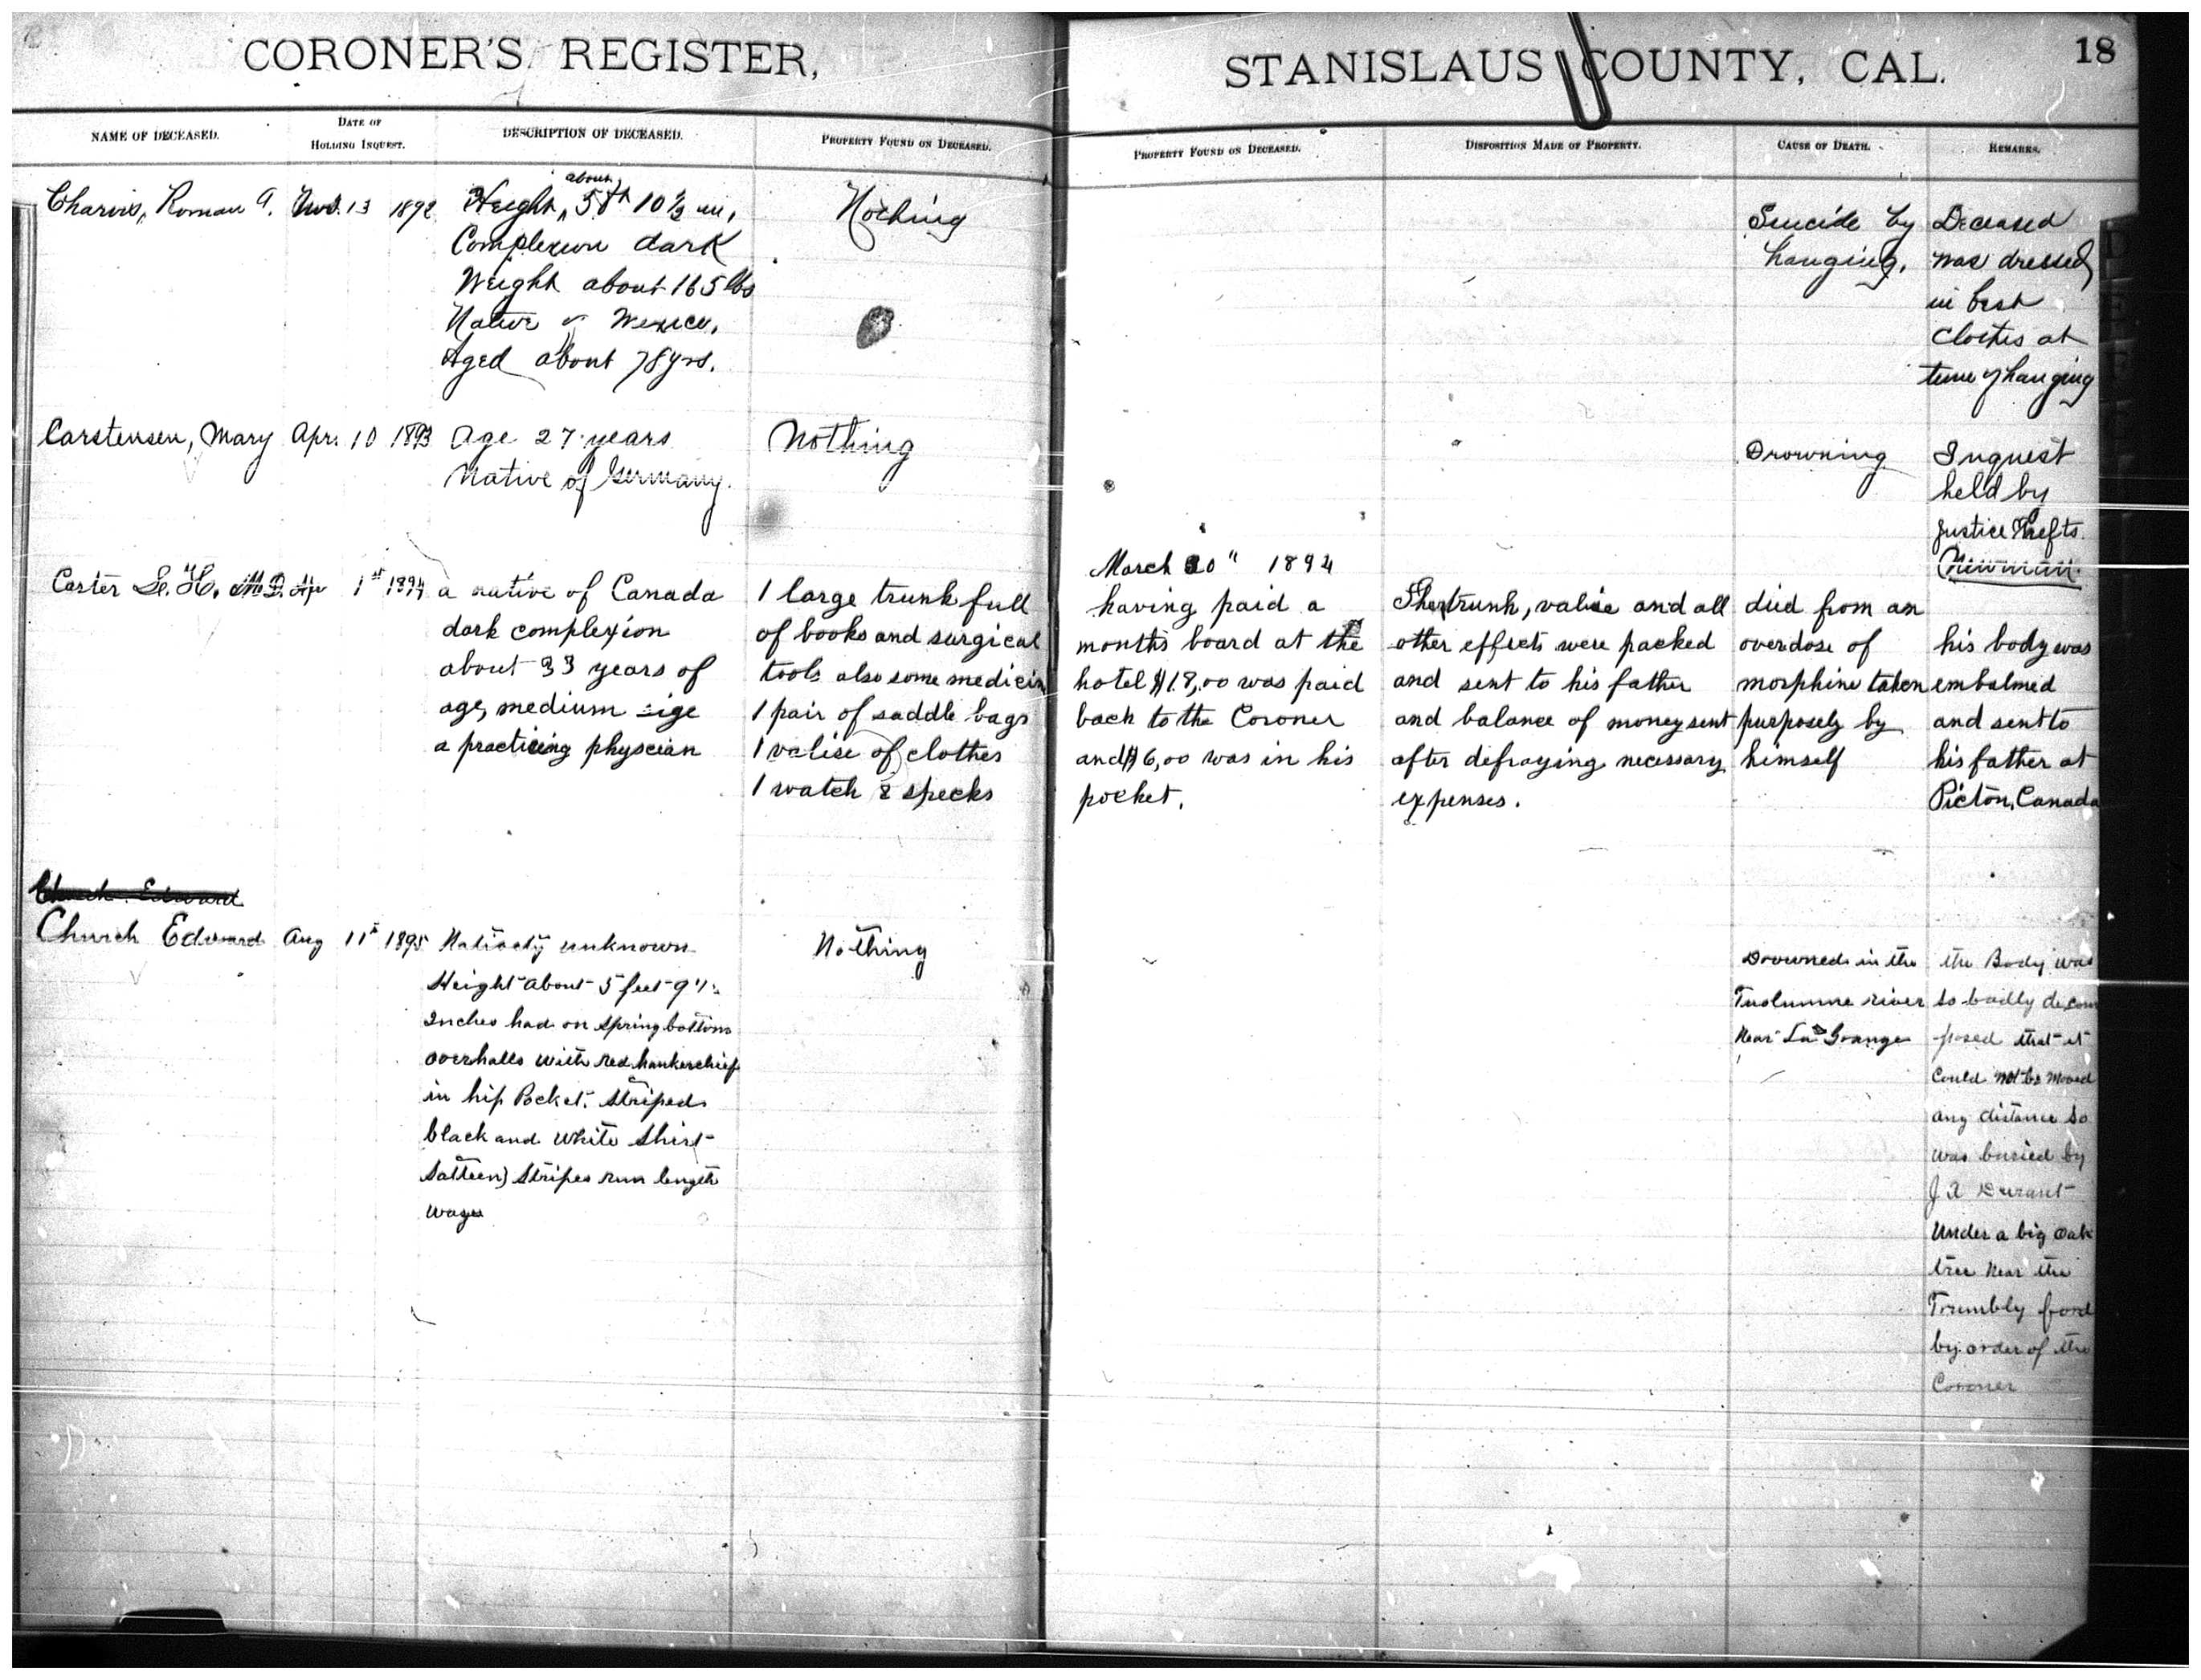 CORONER'S REGISTER,
NAME OF DECEASED.
DATE OF
HOLDING INQUEST.
DESCRIPTION OF DECEASED.
PROPERTY FOUND ON DECEASED.
Roman A. Nov. 13 1892
about
Height, 5 ft 10 ½ in,
Complexion dark
Weight about 165 lbs
Native of Mexico.
Aged about 78 yrs.
Nothing
Carstensen, Mary Apr. 10 1893
Age 27 years
Native of Germany.
Nothing
Carter L. H. M.D. Apr 1st 1894
a native of Canada
dark complexion
about 33 years of
age, medium sige
a practicing physcian
1 large trunk full
of books and surgical
tools also some medicin
1 pair of saddle bags
1 valise of clothes
1 watch & specks
Church Edward
Church Edward Aug 11th 1895
Nativety unknown
Height about 5 feet 9
Inches had on spring bottom
overhalls with red hankerchief
in hip Pocket. Striped
black and white Shirt
Satteen) Stripes run length
ways
Nothing
STANISLAUS COUNTY, CAL.
18
PROPERTY FOUND ON DECEASED.
DISPOSITION MADE OF PROPERTY.
CAUSE OF DEATH.
REMARKS.
Suicide by
hanging.
Deceased
was dressed
in best
clothes at
time of hanging
Drowning
Inquest
held by
Justice
Newman.
March 20" 1894
having paid a
months board at the
hotel $18,00 was paid
back to the Coroner
and $6,00 was in his
pocket.
trunk, valise and all
other effects were packed
and sent to his father
and balance of money sent
after defraying necessary
expenses.
died from an
overdose of
morphine taken
purposely by
himself
his body was
embalmed
and sent to
his father at
Picton, Canada
Drowned in the
Tuolumne river
Near La Grange
the Body was
so badly decom
posed that it
Could not be moved
any distance so
was buried by
J A Durant
Under a big oak
tree near the
Trumbly ford
by order of the
Coroner